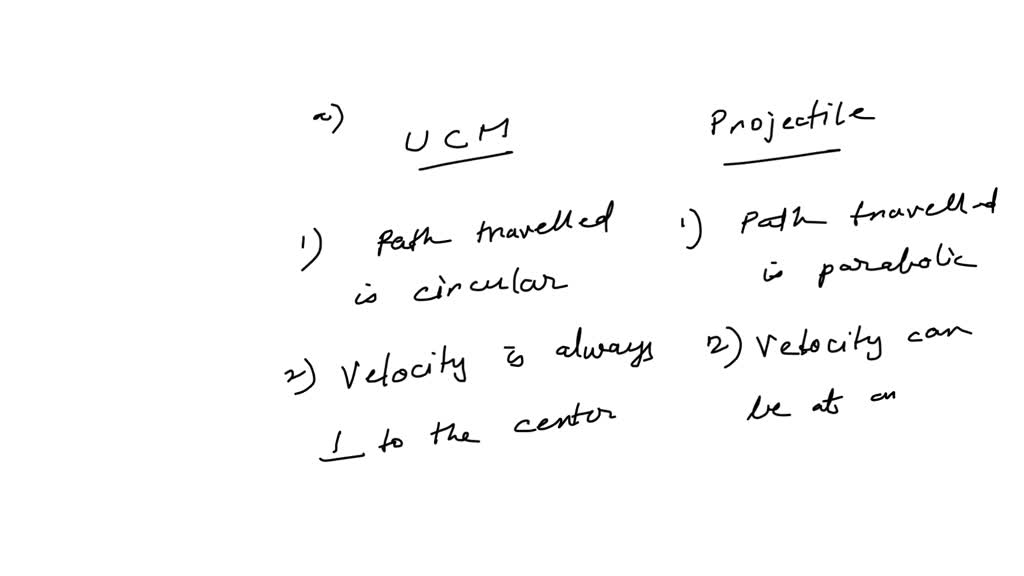 a)
UCM
Projectile
1) Path travelled
is circular
1) Path travelled
is parabolic
2) Velocity is always
⊥ to the center
2) Velocity can
be at an